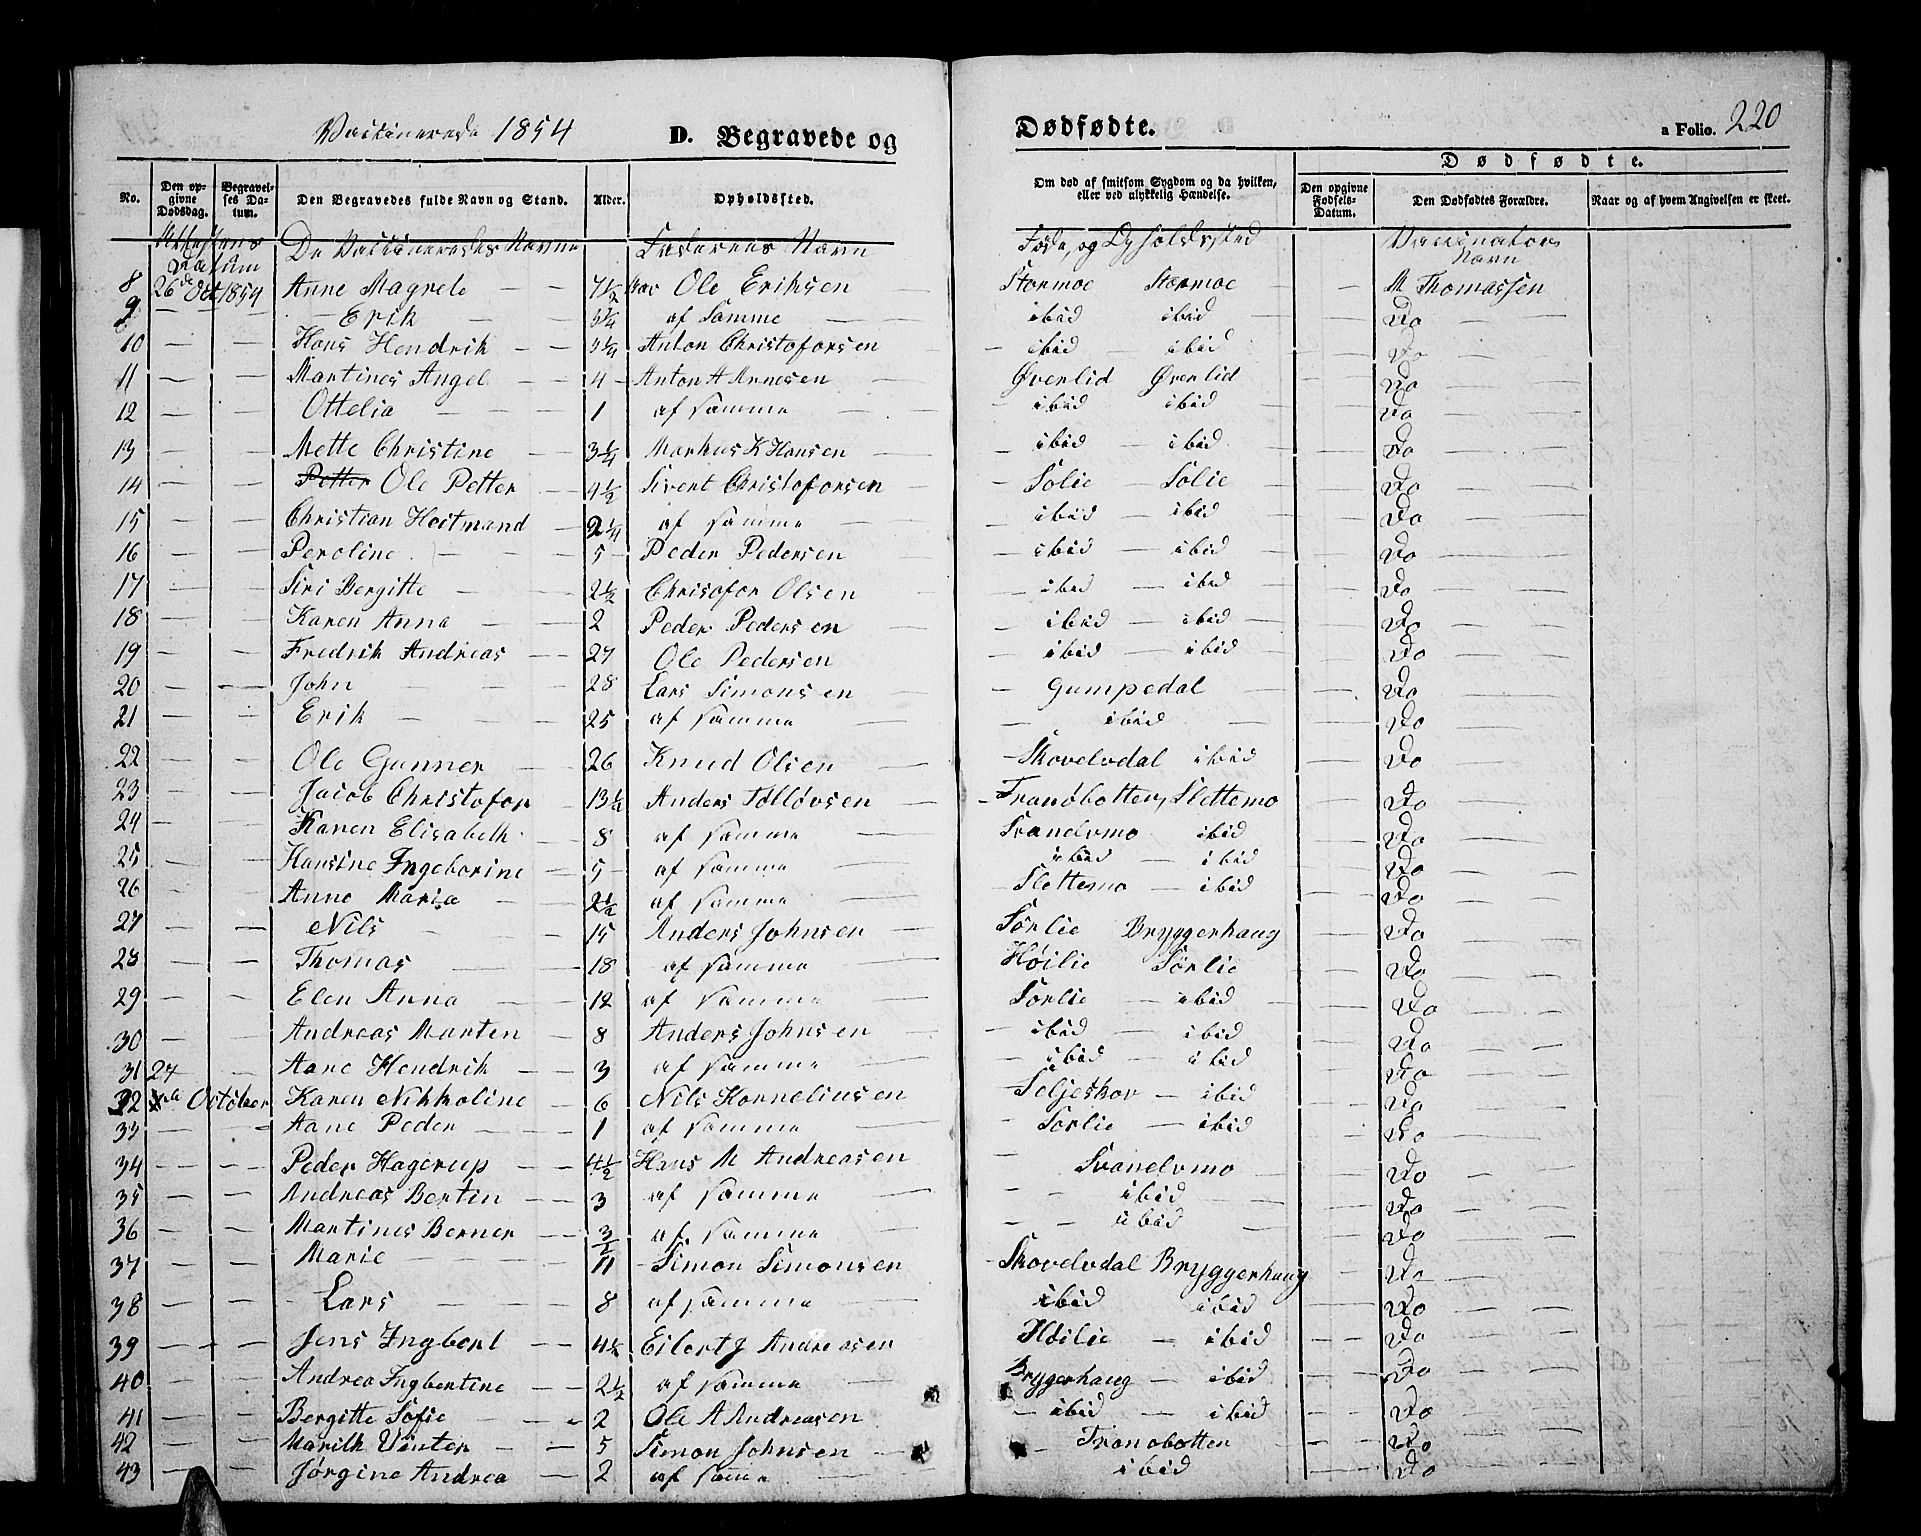 Vaccinerede 1854 D. Begravede og Dødfødte. a Folio. 220
No. Den opgivne Dødsdag. Begravelses Datum. Den Begravedes fulde Navn og Stand. Alder. Opholdssted. Om død af smitsom Sygdom og da hvilken, eller ved ulykkelig Hændelse. Dødfødte. Den opgivne Fødsels-Datum. Den Dødfødtes Forældre. Naar og af hvem Angivelsen er skeet.
Attestens Datum De Vaccineredes Navne Faderens Navn Føde, og Opholdssted Vaccinators Navn
8 26de Oct 1854 Anne Magrele — — 7 1/2 Ole Eriksen Stormoe Stormoe M Thomassen
9 — — — Erik — — 5 1/4 af Samme — — ibid ibid Do — —
10 — — Hans Hendrik — — 3 1/4 Anton Christofersen — ibid — ibid — Do — —
11 — — Martines Angel — — 4 — Anton A Arnesen — Øverlid Øverlid — Do — —
12 — — Ottelia — — — 1 af samme — — ibid ibid — Do — —
13 — — Mette Christine — 3 1/4 Markus K Hansen — ibid — ibid — Do — —
14 — — Petter Ole Petter — 4 1/2 Sivert Christofersen — Solie — Solie — Do — —
15 — — Christian Hoitmand — 2 1/4 af samme — — ibid — ibid — Do — —
16 — — Peroline — — — 5 — Peder Pedersen — ibid — ibid — Do — —
17 — — Siri Bergitte — — 2 1/2 Chrisofor Olsen — ibid — ibid — Do — —
18 — — Karen Anna — — 2 Peder Pedersen — ibid — ibid — Do — —
19 — — Fredrik Andreas — — 27 Ole Pedersen — ibid — ibid — Do — —
20 — — John — — 28 Lars Simonsen — Gumpedal — Do — —
21 — — Erik — — — 25 af samme — — ibid — Do — —
22 — — Ole Gunner — — 26 Knud Olsen — — Skovelvdal ibid — Do — —
23 — — Jacob Christofor — 13 1/2 Anders Tolløvsen — — Tranøbotten, Slettemo Do — —
24 — — Karen Elisabeth — 8 af samme — Svanelvmo ibid — Do — —
25 — — Hansine Ingeborine — 5 — af samme — ibid — ibid — Do — —
26 — — Anne Maria — — 2 1/2 af samme — — Slettemo — ibid — Do — —
27 — — Nils — — 15 Anders Johnsen — Sørlie Bryggerhaug Do — —
28 — — Thomas — — 18 af samme — Høilie Sørlie Do — —
29 — — Elen Anna — — 12 af samme — Sørlie — ibid — Do — —
30 — — Andreas Marten — 8 Anders Johnsen — ibid — ibid — Do — —
31 27 — Aane Hendrik — 3 af samme — ibid — ibid — Do — —
32 October Karen Nikkoline — 6 Nils Korneliusen — Seljeskov — ibid — Do — —
33 — — Aane Peder — — 1 af samme — — Sørlie — ibid — Do — —
34 — — Peder Hagerup — — 4 1/2 Hans M Andreasen — Svanelvmo — Do — —
35 — — Andreas Bertin — 3 af samme — — ibid — Do — —
36 — — Martines Berner — 3/2 af samme — — ibid — Do — —
37 — — Marie — — 11 — Simon Simonsen — Skovelvdal Bryggerhaug Do — —
38 — — Lars — — 8 af samme — ibid ibid — Do — —
39 — — Jens Ingbert — 4 1/2 Eilert J Andreasen Høilie — ibid — Do — —
40 — — Andrea Ingbertine — — 2 1/2 af samme — Bryggerhaug — ibid — Do — —
41 — — Bergitte Sofie — — 2 Ole A Andreasen — ibid — ibid — Do — —
42 — — Marith Vinter — — 5 Simon Johnsen — — Tranobotten — Do — —
43 — — Jørgine Andrea — 2 af samme — ibid — Do — —